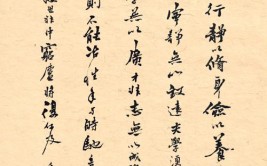 行靜以脩身儉以養
寧靜無以致遠夫學須
學無以廣才非志無以成
則不能冶性年與時馳
窮廬將復何及